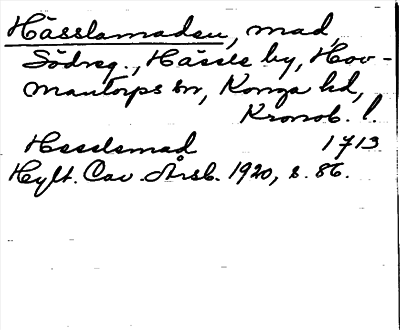 Hässlamaden, mad,
Södreg., Hässle by, Hov-
mantorps sn, Konga hd,
Kronob. l.
Hesslemad 1713
Hylt. Cav. Årsb. 1920, s. 86.